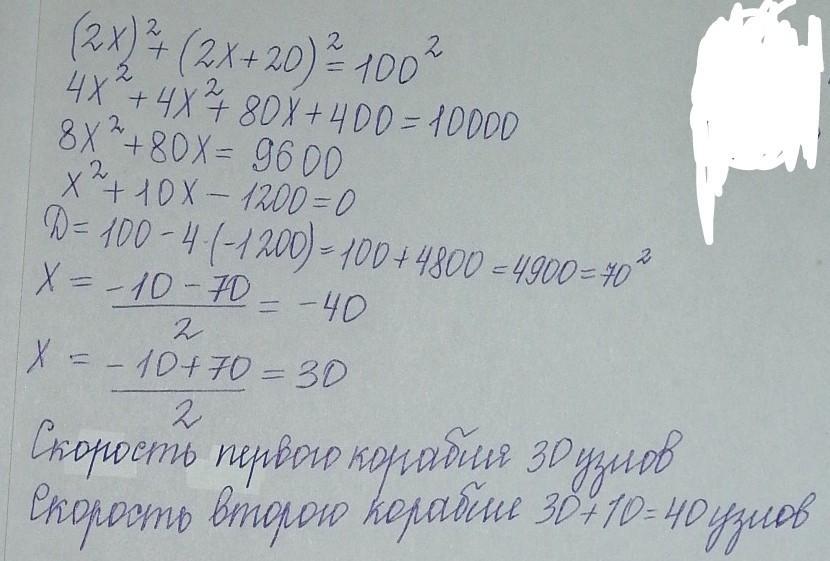 (2x)² + (2x+20)² = 100²
4x² + 4x² + 80x + 400 = 10000
8x² + 80x = 9600
x² + 10x - 1200 = 0
D = 100 - 4·(-1200) = 100 + 4800 = 4900 = 70²
x = (-10 - 70)/2 = -40
x = (-10 + 70)/2 = 30
Скорость первого корабля 30 узлов
Скорость второго корабля 30+10=40 узлов